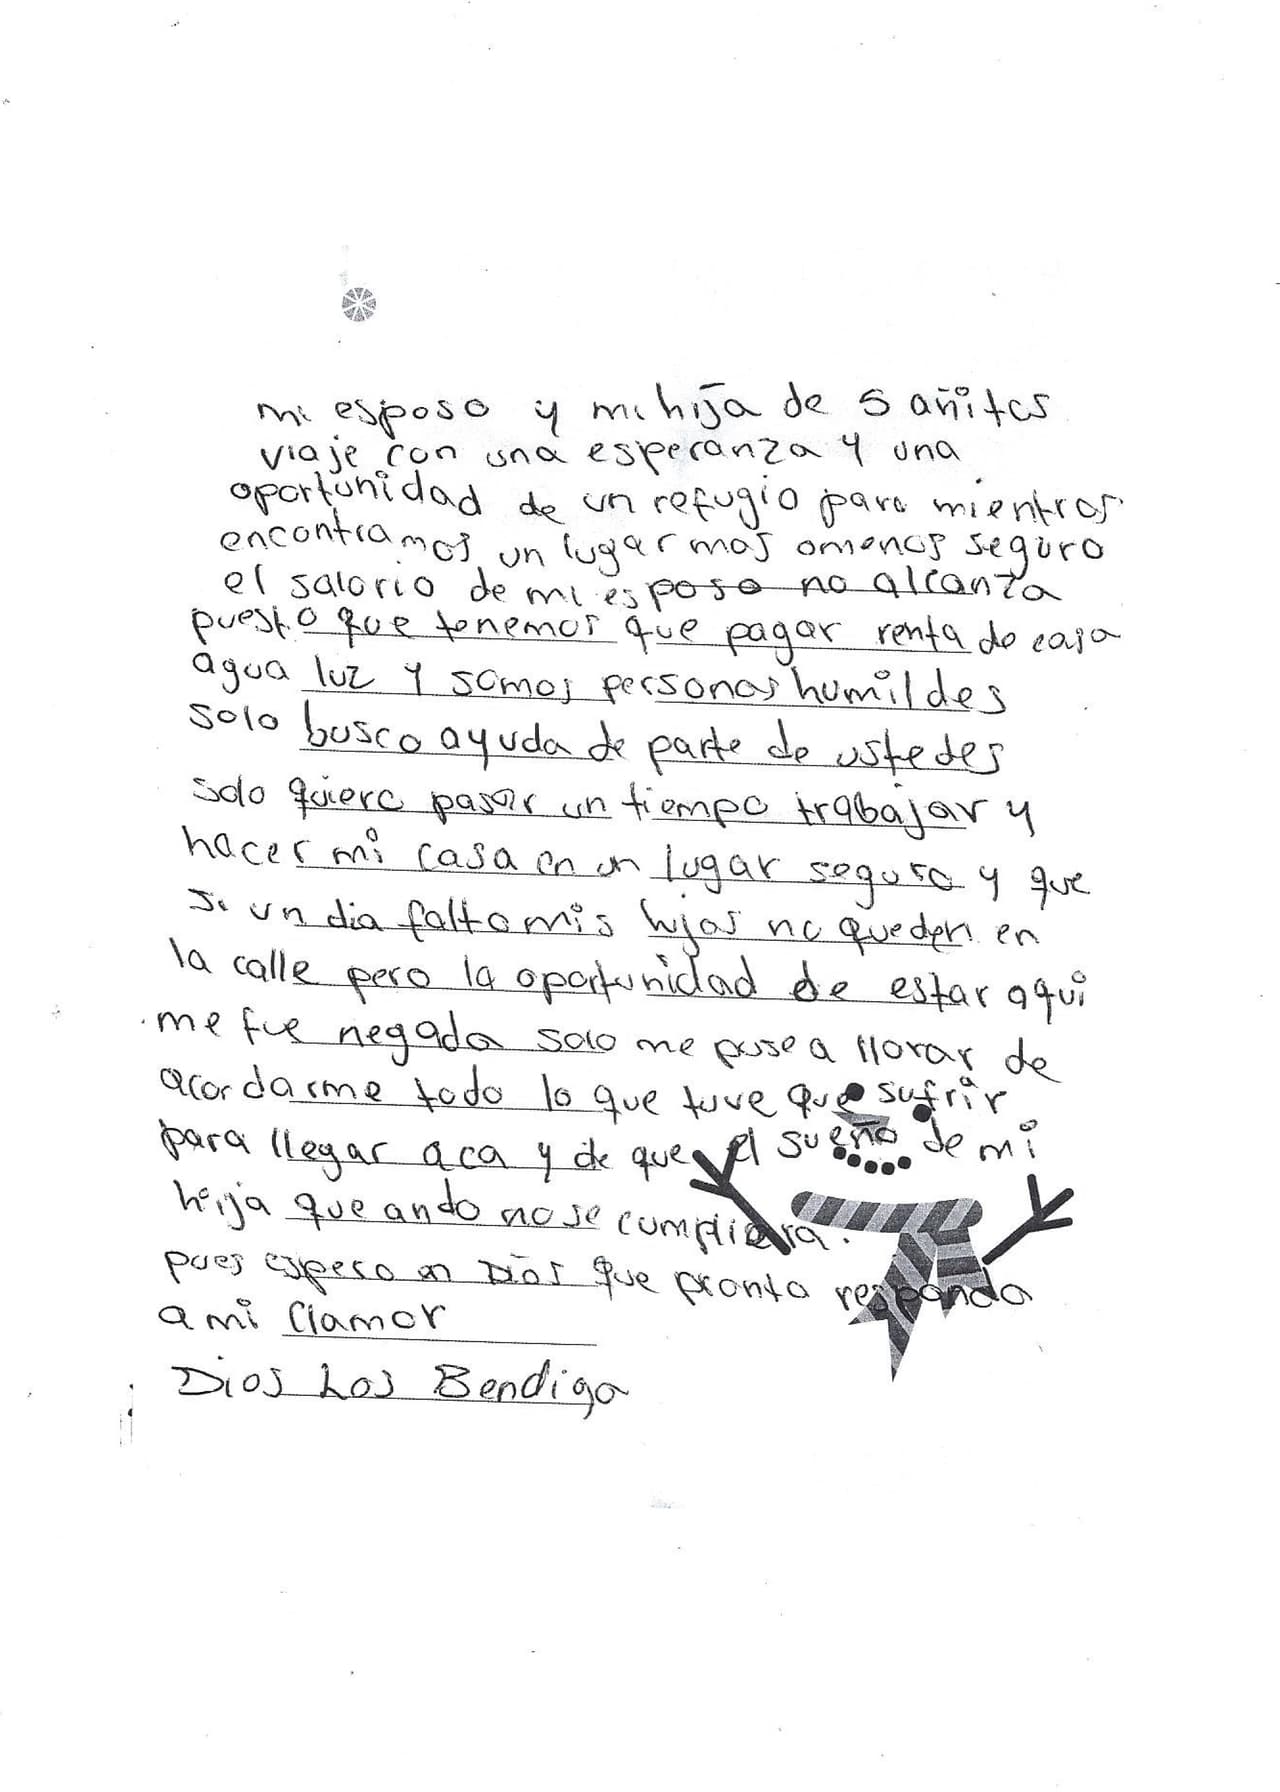 mi esposo y mi hija de 5 añitos
viaje con una esperanza y una
oportunidad de un refugio para mientras
encontramos un lugar mas omenos seguro
el salario de mi esposo no alcanza
puesto que tenemos que pagar renta de casa
agua luz y somos personas humildes
solo busco ayuda de parte de ustedes
solo quiero pasar un tiempo trabajar y
hacer mi casa en un lugar seguro y que
si un dia falto mis hijos no queden en
la calle pero la oportunidad de estar aqui
me fue negada solo me puse a llorar de
acordarme todo lo que tuve que sufrir
para llegar aca y de que el sueño de mi
hija que ando no se cumpliera.
pues espero en Dios que pronto responda
a mi clamor
Dios Los Bendiga